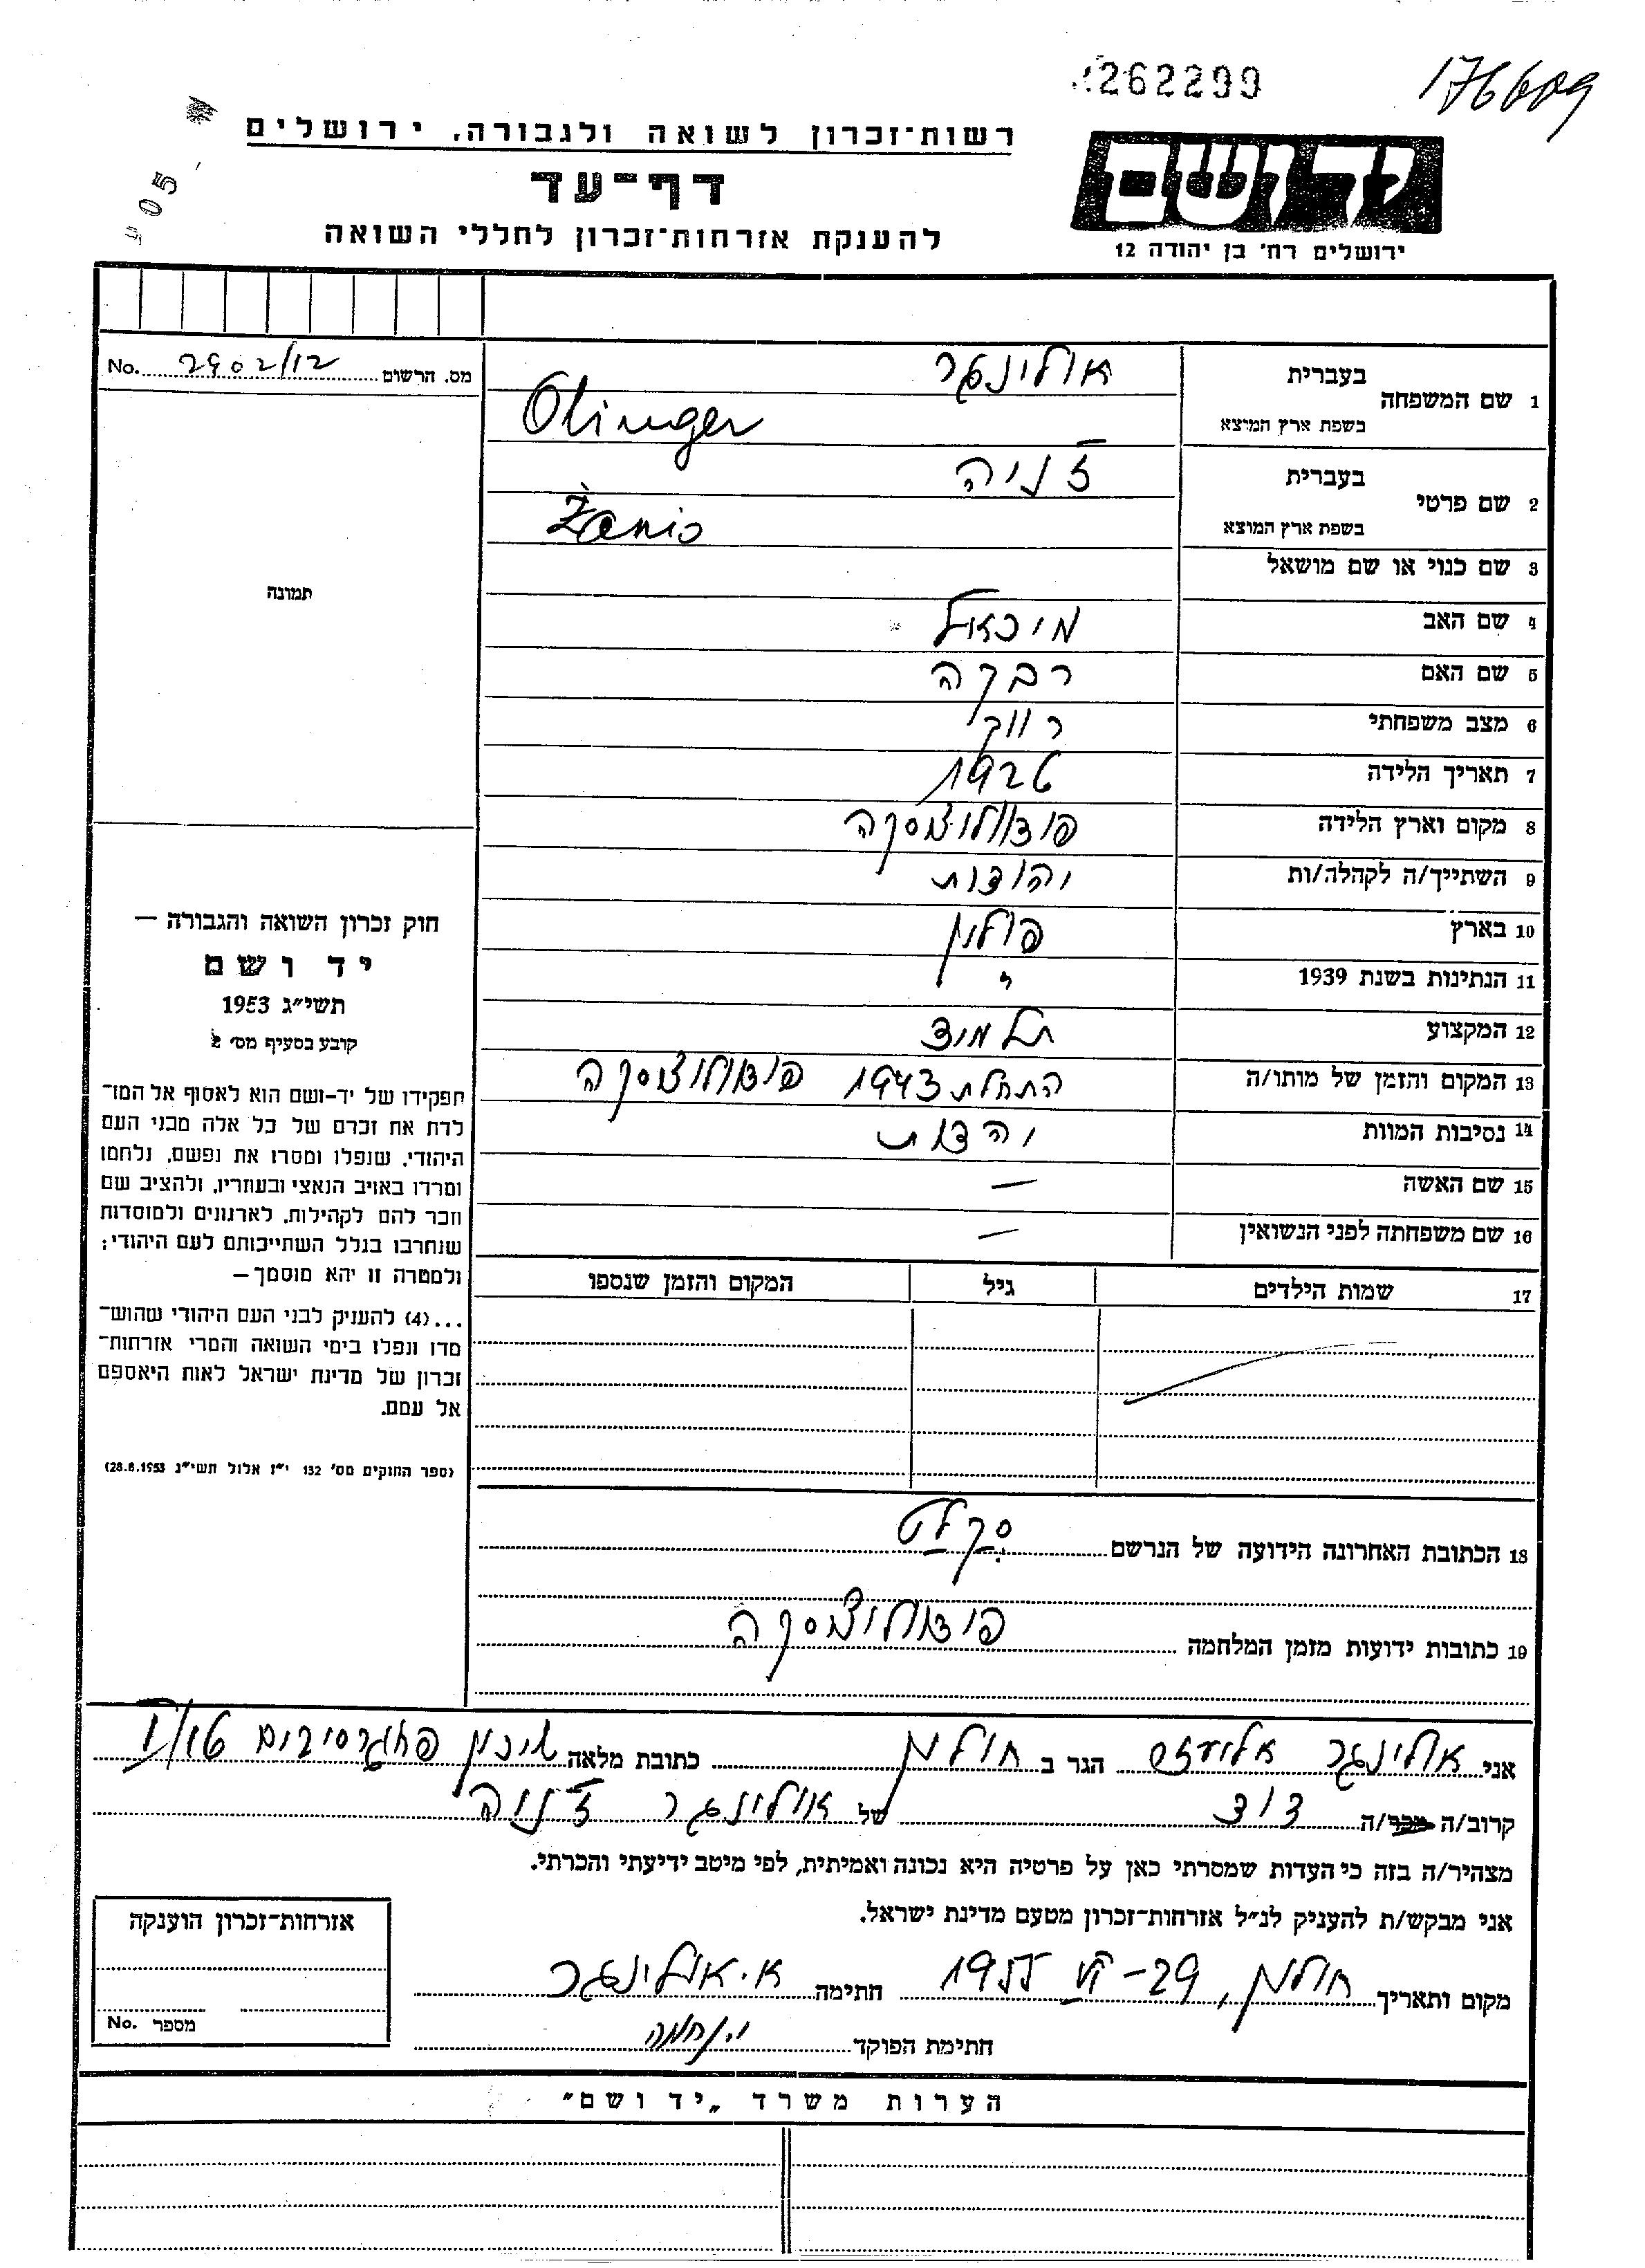 262299
176609
רשות־זכרון לשואה ולגבורה, ירושלים
דף־עד
להענקת אזרחות־זכרון לחללי השואה
יד ושם
ירושלים רח׳ בן יהודה 12
505
מס. הרשום 2902/12 No.
1 שם המשפחה
בעברית אולינגר
בשפת ארץ המוצא Olinger
2 שם פרטי
בעברית ז׳ניה
בשפת ארץ המוצא Żania
3 שם כנוי או שם מושאל
4 שם האב מיכאל
5 שם האם רבקה
6 מצב משפחתי רווק
7 תאריך הלידה 1926
8 מקום וארץ הלידה פודוולוצ׳סקה
9 השתייך/ה לקהלה/ות יהודית
10 בארץ פולין
11 הנתינות בשנת 1939 "
12 המקצוע תלמיד
13 המקום והזמן של מותו/ה התחלת 1943 פודוולוצ׳סקה
14 נסיבות המוות
15 שם האשה —
16 שם משפחתה לפני הנשואין —
17 שמות הילדים גיל המקום והזמן שנספו
18 הכתובת האחרונה הידועה של הנרשם סקלט
19 כתובות ידועות מזמן המלחמה פודוולוצ׳סקה
תמונה
חוק זכרון השואה והגבורה —
יד ושם
תשי״ג 1953
קובע בסעיף מס׳ 2
תפקידו של יד-ושם הוא לאסוף אל המו־
לדת את זכרם של כל אלה מבני העם
היהודי, שנפלו ומסרו את נפשם, נלחמו
ומרדו באויב הנאצי ובעוזריו, ולהציב שם
וזכר להם לקהילות, לארגונים ולמוסדות
שנחרבו בגלל השתייכותם לעם היהודי;
ולמטרה זו יהא מוסמך—
...(4) להעניק לבני העם היהודי שהוש־
מדו ונפלו בימי השואה והמרי אזרחות־
זכרון של מדינת ישראל לאות היאספם
אל עמם.
(ספר החוקים מס׳ 132 י״ז אלול תשי״ג 28.8.1953)
אני אולינגר אליעזר הגר ב חולון כתובת מלאה שיכון פרוגרסיבים
קרוב/ה מכר/ה דוד של אולינגר ז׳ניה
מצהיר/ה בזה כי העדות שמסרתי כאן על פרטיה היא נכונה ואמיתית, לפי מיטב ידיעתי והכרתי.
אני מבקש/ת להעניק לנ״ל אזרחות־זכרון מטעם מדינת ישראל.
מקום ותאריך חולון, 29-VI 1955 חתימה א. אולינגר
חתימת הפוקד
אזרחות־זכרון הוענקה
מספר No.
הערות משרד „יד ושם״